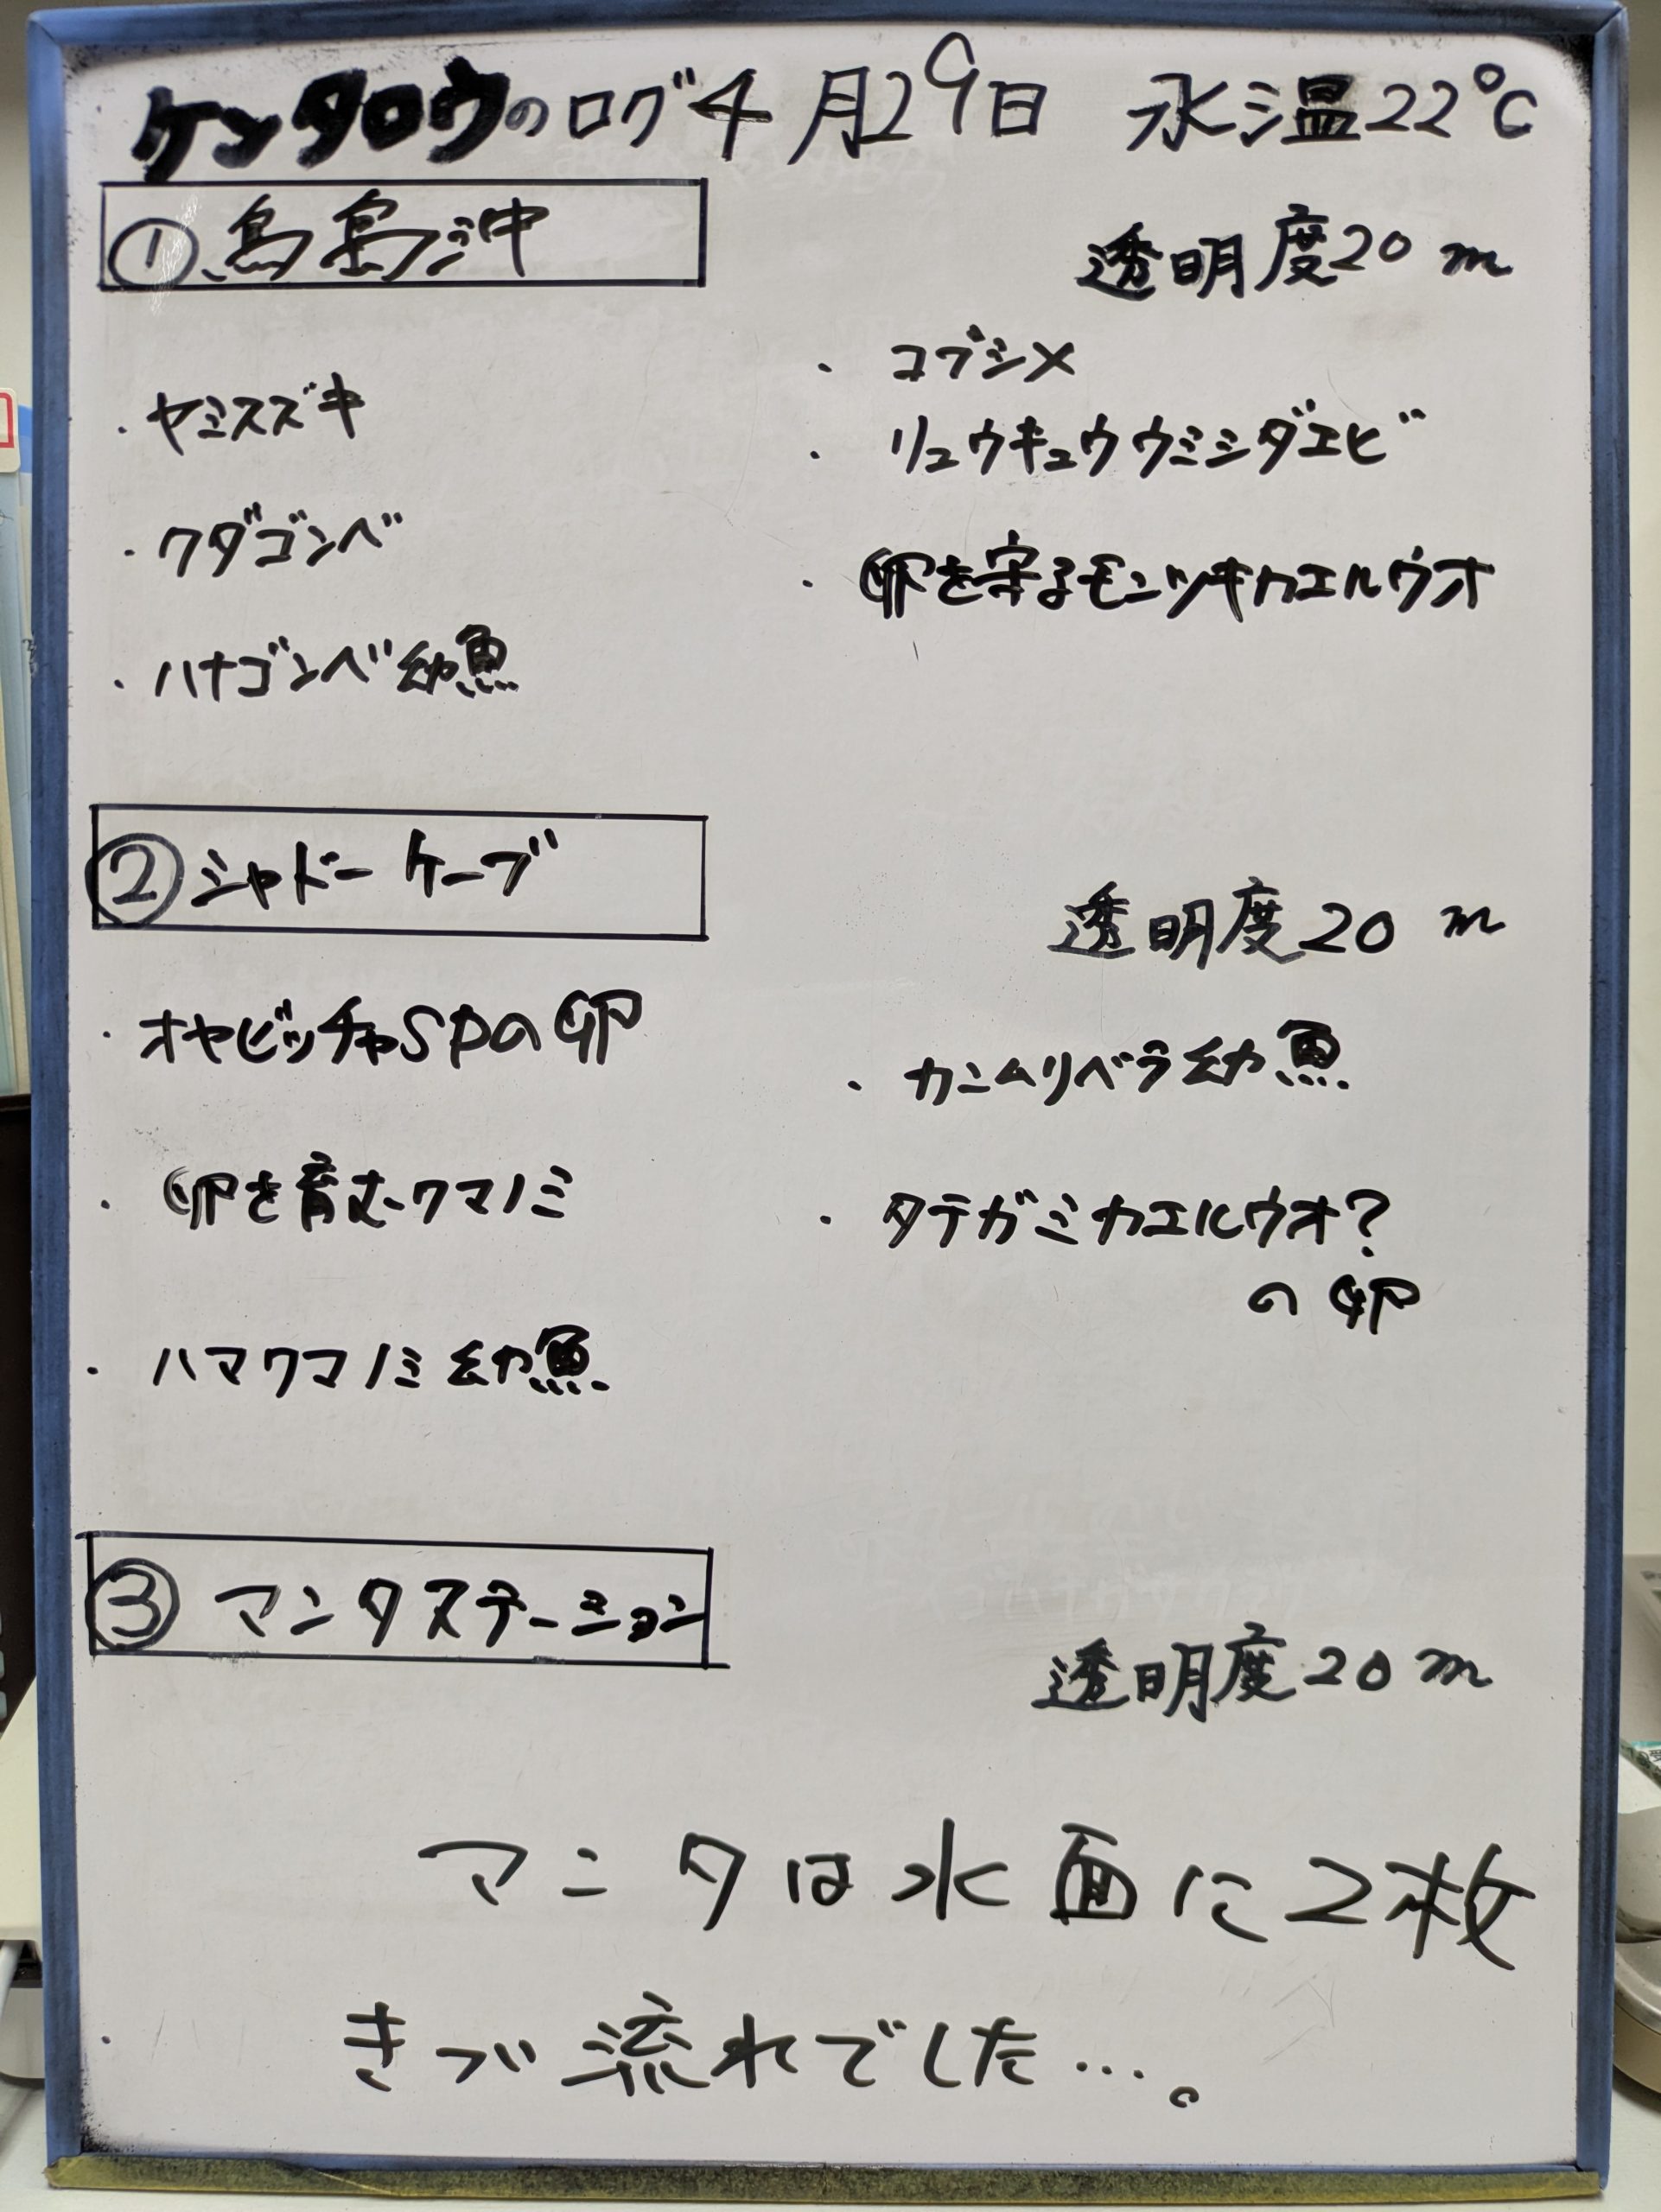 ケンタロウのログ4月29日 水温22℃
①鳥島沖
透明度20m
・ヤミスズキ
・クダゴンベ
・ハナゴンベ幼魚
・コブシメ
・リュウキュウウミシダエビ
・卵を守るモンツキカエルウオ
②シャドーケーブ
透明度20m
・オヤビッチャSPの卵
・卵を育むクマノミ
・ハマクマノミ幼魚
・カンムリベラ幼魚
・タテガミカエルウオ?
の卵
③マンタステーション
透明度20m
マンタは水面に2枚
・きづ流れでした…。